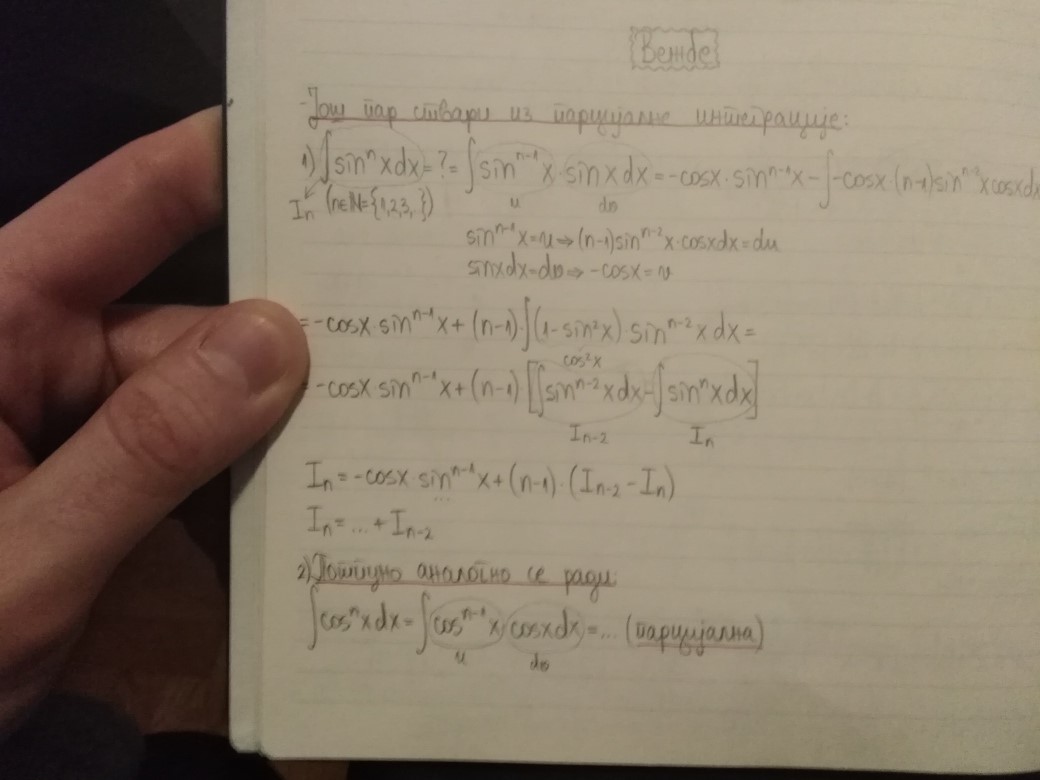 Вежбе
-Још пар ствари из парцијалне интеграције:
1) ∫sinⁿxdx=?=∫sinⁿ⁻¹x·sinxdx=-cosx·sinⁿ⁻¹x-∫-cosx·(n-1)sinⁿ⁻²xcosxdx
Iₙ (n∈ℕ={1,2,3,..}) u dv
sinⁿ⁻¹x=u⇒(n-1)sinⁿ⁻²x·cosxdx=du
sinxdx=dv⇒-cosx=v
=-cosx·sinⁿ⁻¹x+(n-1)·∫(1-sin²x)·sinⁿ⁻²xdx=
cos²x
=-cosx·sinⁿ⁻¹x+(n-1)[∫sinⁿ⁻²xdx-∫sinⁿxdx]
Iₙ₋₂ Iₙ
Iₙ=-cosx·sinⁿ⁻¹x+(n-1)·(Iₙ₋₂-Iₙ)
...
Iₙ=...+Iₙ₋₂
2) Потпуно аналогно се ради:
∫cosⁿxdx=∫cosⁿ⁻¹x cosxdx=...(парцијална)
u dv